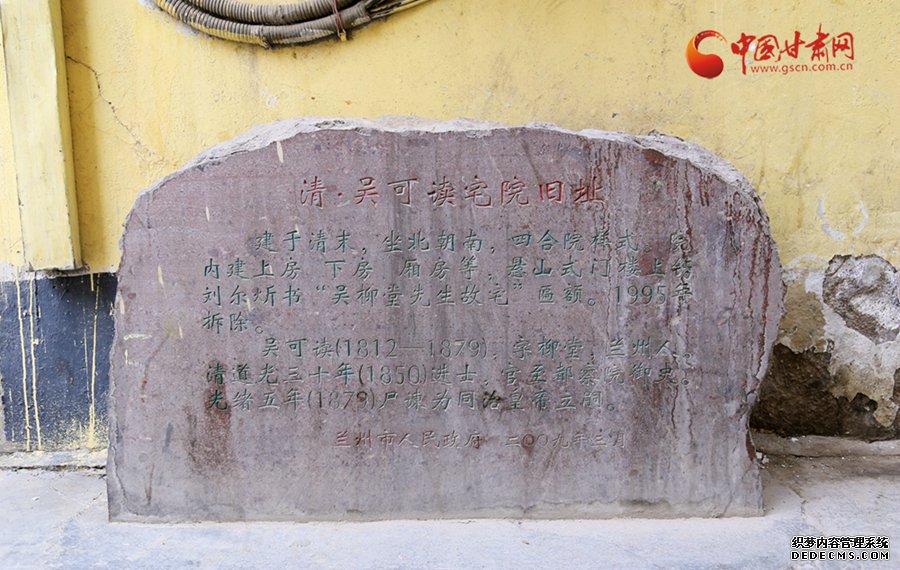 中国甘肃网
www.gscn.com.cn
清·吴可读宅院旧址
建于清末，坐北朝南，四合院样式。院
内建上房 下房 厢房等，悬山式门楼上
刘尔炘书“吴柳堂先生故宅”匾额。1995年
拆除。
吴可读(1812—1879)，字柳堂，兰州人。
清道光三十年(1850)进士，官至都察院御史。
光绪五年(1879)尸谏为同治皇帝立嗣。
兰州市人民政府 二〇〇九年三月
织梦内容管理系统
DEDECMS.COM